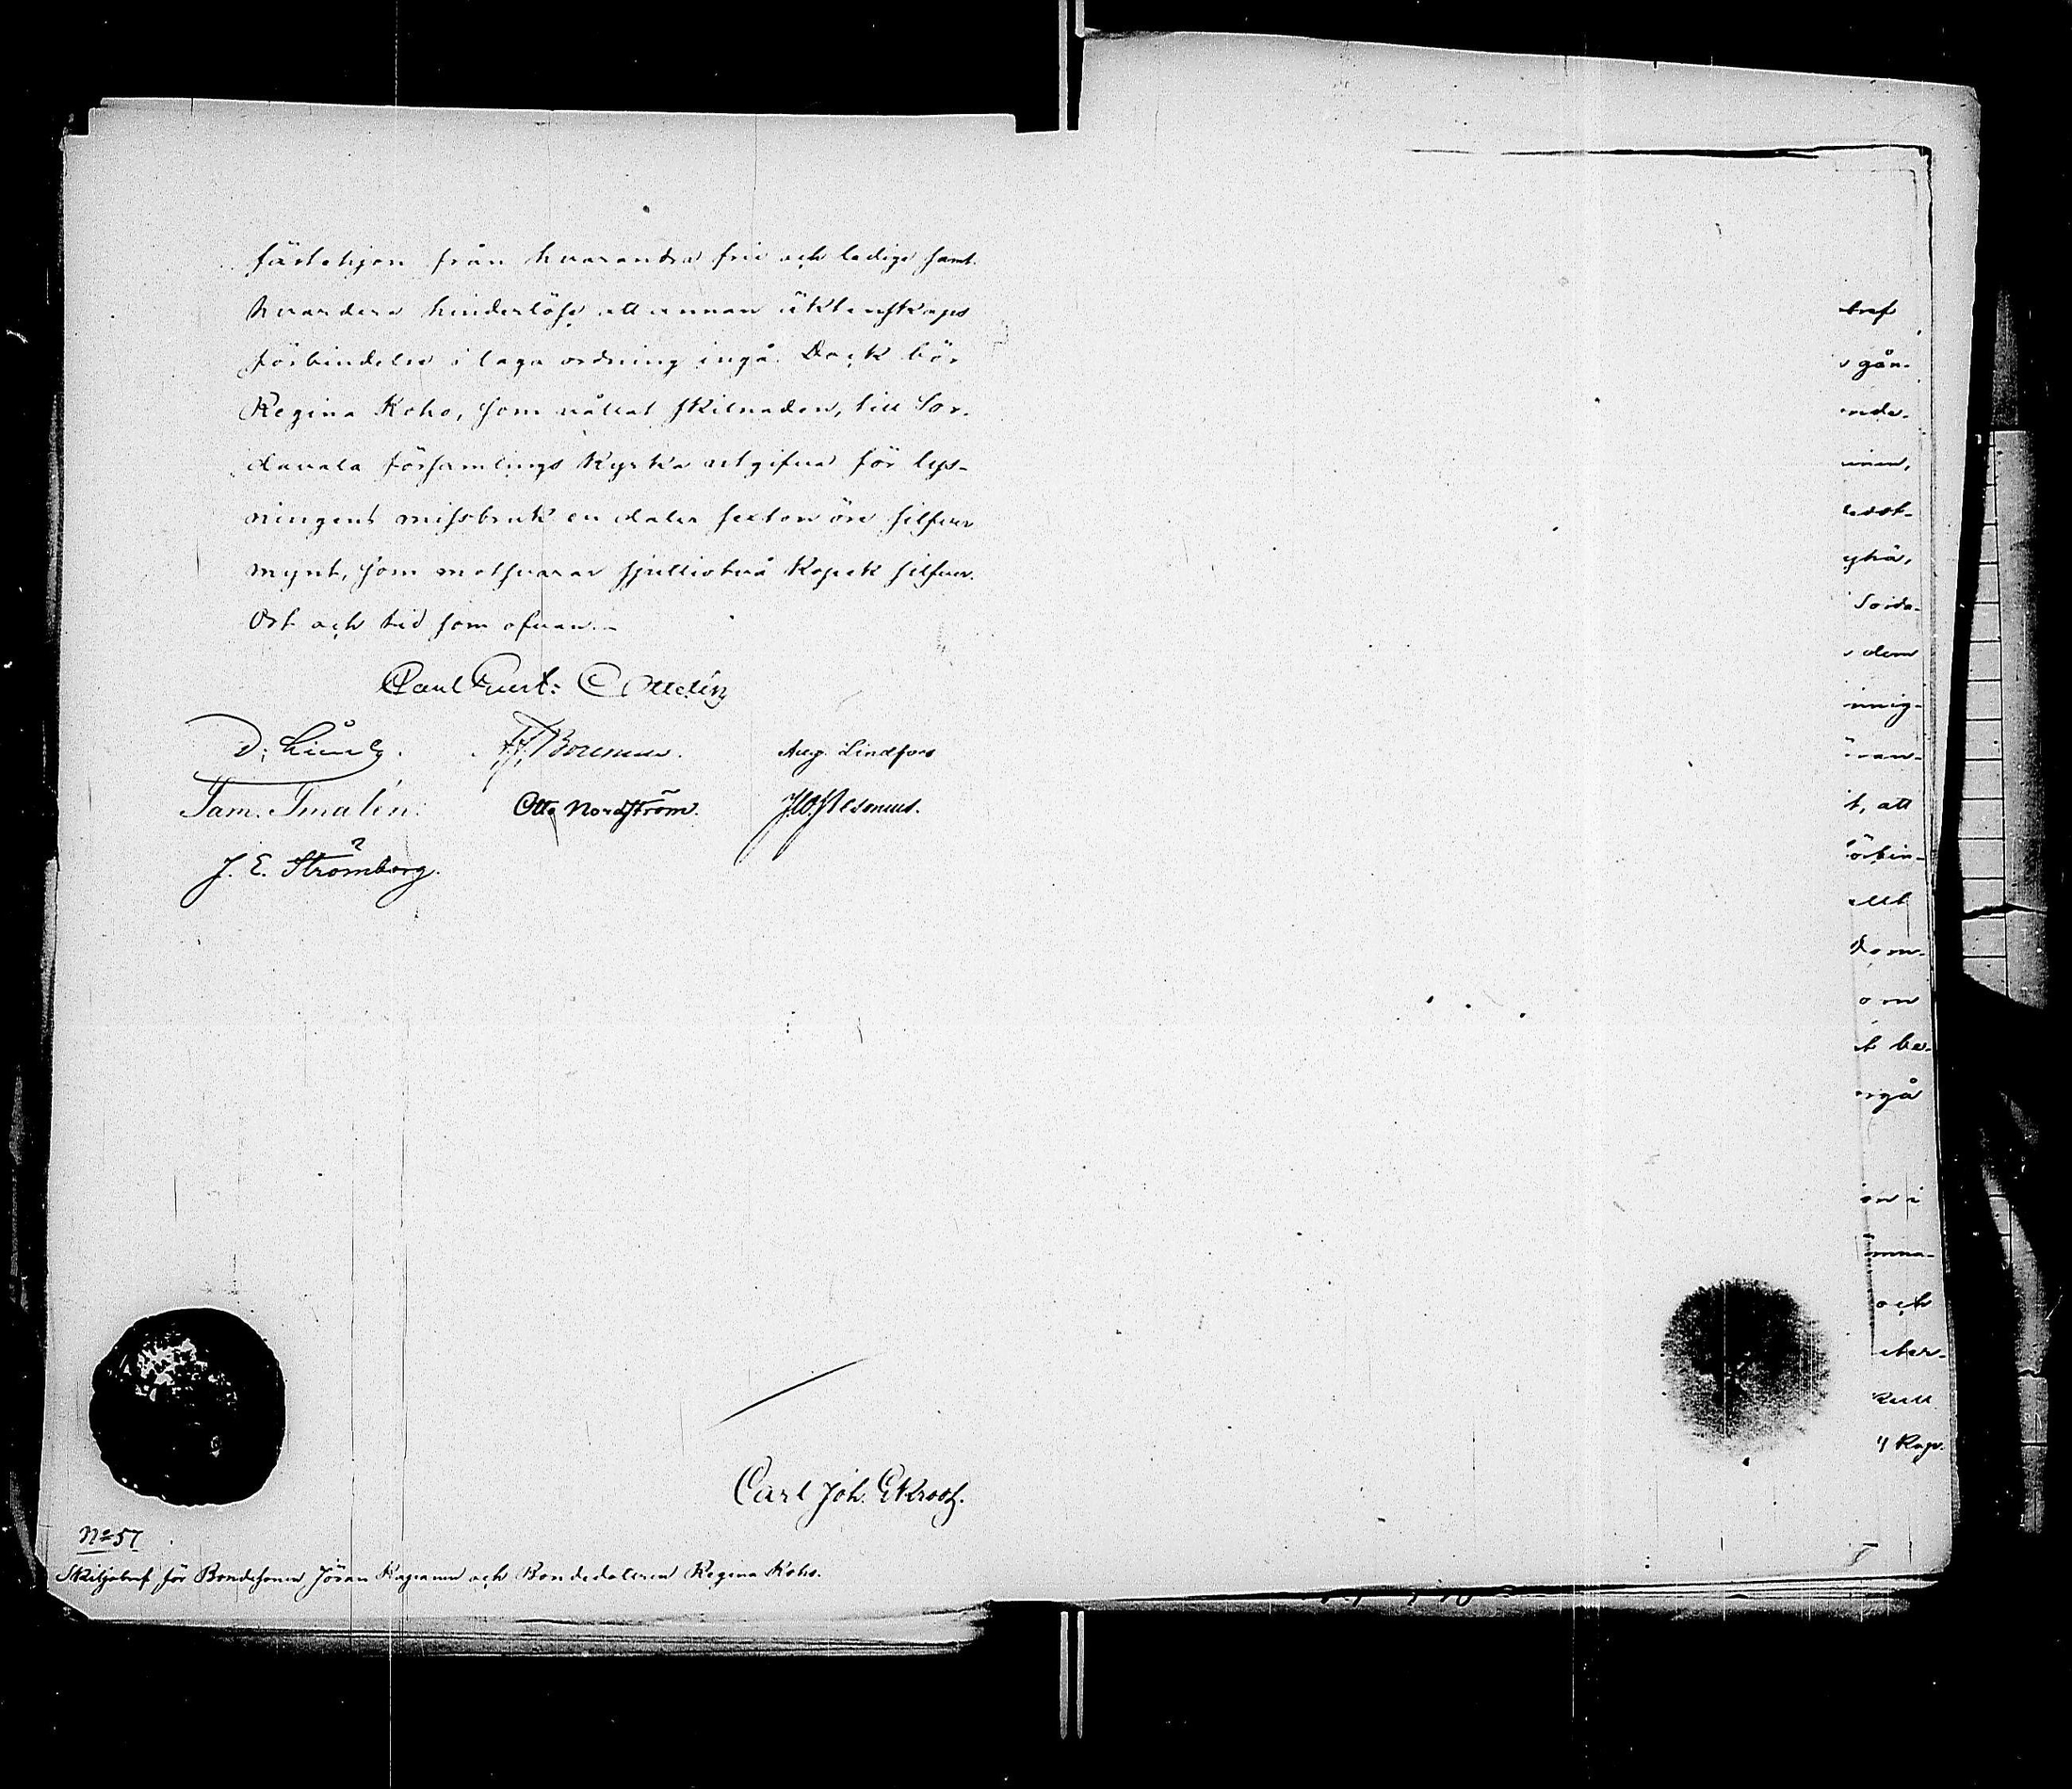 fästehjon från hvarandra frie och ledige samt
hvardera hinderlöse att annan äktenskaps
förbindelse i laga ordning ingå. Dock bör
Regina Koho, som vållat skilnaden, till Sor-
davala församlings Kyrka utgifva för lys-
ningens missbruk en daler sexton öre silfver
mynt, som motsvarar sjuttiotvå Kopek silfver.
Ort och tid som ofvan.
Carl Gust: Ottelin
Aug. Lindfors
Sam. Smalén. Otto Nordström.
J. E. Strömborg.
Carl Joh. Ekroos.
No 57
Skiljobref för Bondesonen Jöran Kapanen och Bondedottren Regina Koho.
bref
gån-
nde-
inen,
Sorda-
dem
ning-
öran-
t, att
örbin-
ellt
Dom-
om
t be-
rgå
en i
och
4 Kap.